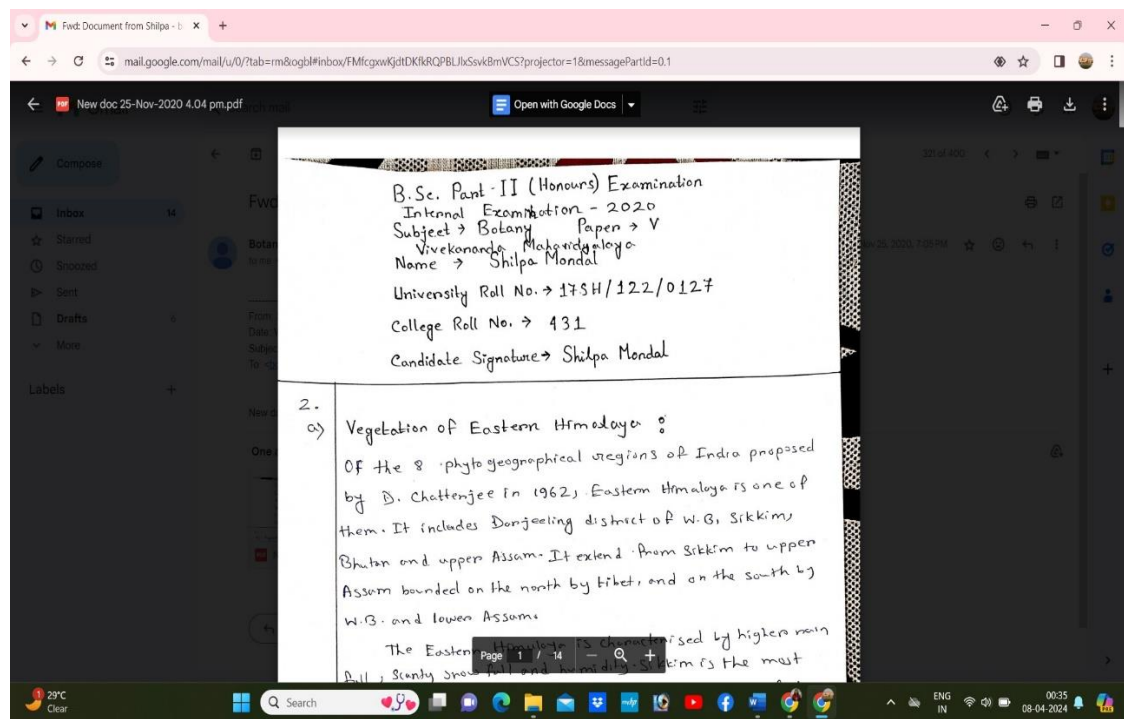 Fwd: Document from Shilpa - b
mail.google.com/mail/u/0/?tab=rm&ogbl#inbox/FMfcgxwKjdtDKfkRQPBLJlxSsvkBmVCS?projector=1&messagePartId=0.1
New doc 25-Nov-2020 4.04 pm.pdf
Open with Google Docs
Compose
221 of 400
Inbox 14
Starred
Snoozed
Sent
Drafts 6
More
Labels
B.Sc. Part-II (Honours) Examination
Internal Examination - 2020
Subject → Botany Paper → V
Vivekananda Mahavidyalaya
Name → Shilpa Mondal
University Roll No. → 17SH/122/0127
College Roll No. → 431
Candidate Signature → Shilpa Mondal
2.
a) Vegetation of Eastern Himalaya :
Of the 8 phytogeographical regions of India proposed
by D. Chatterjee in 1962, Eastern Himalaya is one of
them. It includes Darjeeling district of W.B, Sikkim,
Bhutan and upper Assam. It extend from Sikkim to upper
Assam bounded on the north by tibet, and on the south by
W.B. and lower Assam.
The Eastern Himalaya is characterised by higher rain
fall, scanty snow fall and humidity. Sikkim is the most
Page 1 / 14
29°C
Clear
Search
ENG
IN
00:35
08-04-2024